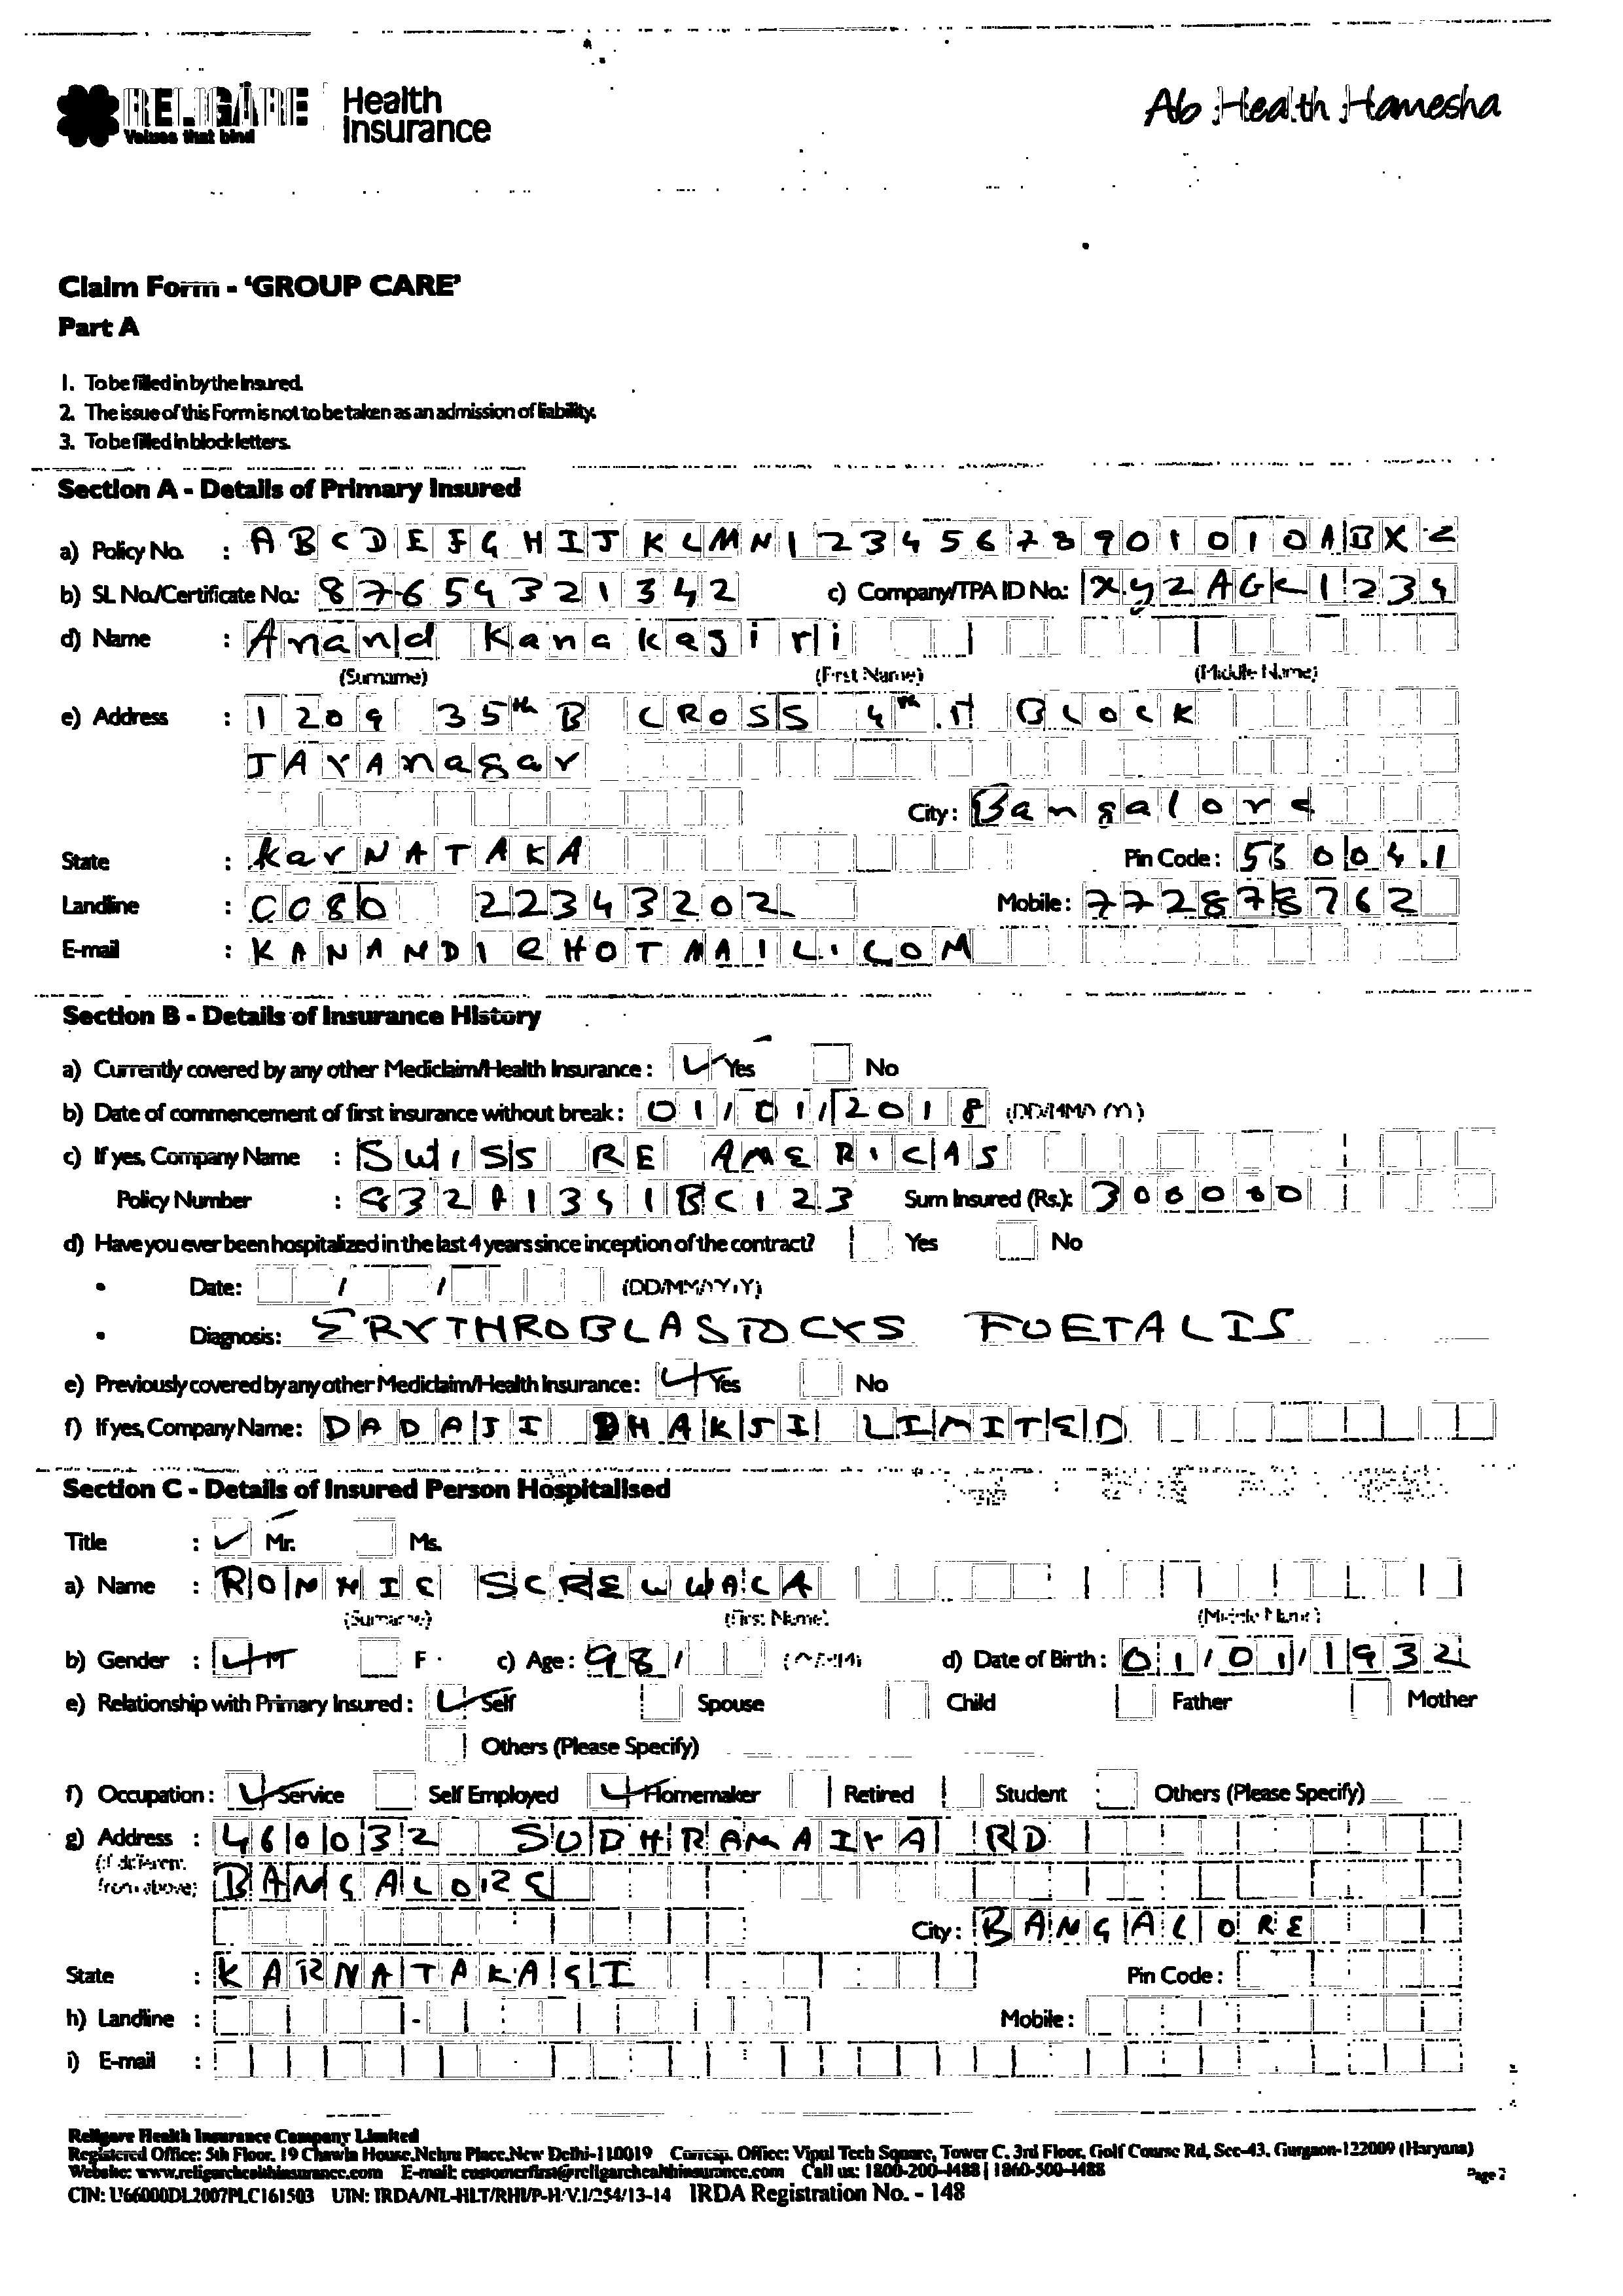 RELIGARE Health Insurance
Values that bind
Ab Health Hamesha
Claim Form - 'GROUP CARE'
Part A
1. To be filled in by the Insured.
2. The issue of this Form is not to be taken as an admission of liability.
3. To be filled in block letters.
Section A - Details of Primary Insured
a) Policy No. : ABCDEFGHIJKLMN12345678901010ABX
b) SL No./Certificate No.: 87654321342 c) Company/TPA ID No.: XyZAGK1234
d) Name : Anand Kanakagiri
(Surname) (First Name) (Middle Name)
e) Address : 1209 35th B CROSS 4th T BLOCK
JAYAnagar
City : Bangalore
State : KarNATAKA Pin Code : 560041
Landline : 0080 22343202 Mobile : 772878762
E-mail : KANAND1@HOTMAIL.COM
Section B - Details of Insurance History
a) Currently covered by any other Mediclaim/Health Insurance : Yes No
b) Date of commencement of first insurance without break : 01/01/2018 (DD/MM/YY)
c) If yes, Company Name : SWISS RE AMERICAS
Policy Number : 932A1341BC123 Sum Insured (Rs.): 300000
d) Have you ever been hospitalized in the last 4 years since inception of the contract? Yes No
• Date: / / (DD/MM/YYYY)
• Diagnosis: ERYTHROBLASTOCYS FOETALIS
e) Previously covered by any other Mediclaim/Health Insurance : Yes No
f) If yes, Company Name : DADAJI DHAKJI LIMITED
Section C - Details of Insured Person Hospitalised
Title : Mr. Ms.
a) Name : RONNIE SCREWWACA
(Surname) (First Name) (Middle Name)
b) Gender : M F c) Age : 98/ d) Date of Birth : 01/01/1932
e) Relationship with Primary Insured : Self Spouse Child Father Mother
Others (Please Specify)
f) Occupation : Service Self Employed Homemaker Retired Student Others (Please Specify)
g) Address : 460032 SUDHRAMAIYA RD
(if different from above) BANGALORE
City : BANGALORE
State : KARNATAKA Pin Code :
h) Landline : - Mobile :
i) E-mail :
Religare Health Insurance Company Limited
Registered Office: 5th Floor, 19 Chawla House, Nehru Place, New Delhi-110019 Corresp. Office: Vipul Tech Square, Tower C, 3rd Floor, Golf Course Rd, Sec-43, Gurgaon-122009 (Haryana)
Website: www.religarehealthinsurance.com E-mail: customerfirst@religarehealthinsurance.com Call us: 1800-200-4488 | 1860-500-4488
CIN: U66000DL2007PLC161503 UIN: IRDA/NL-HLT/RHI/P-H/V.I/254/13-14 IRDA Registration No. - 148
Page 2